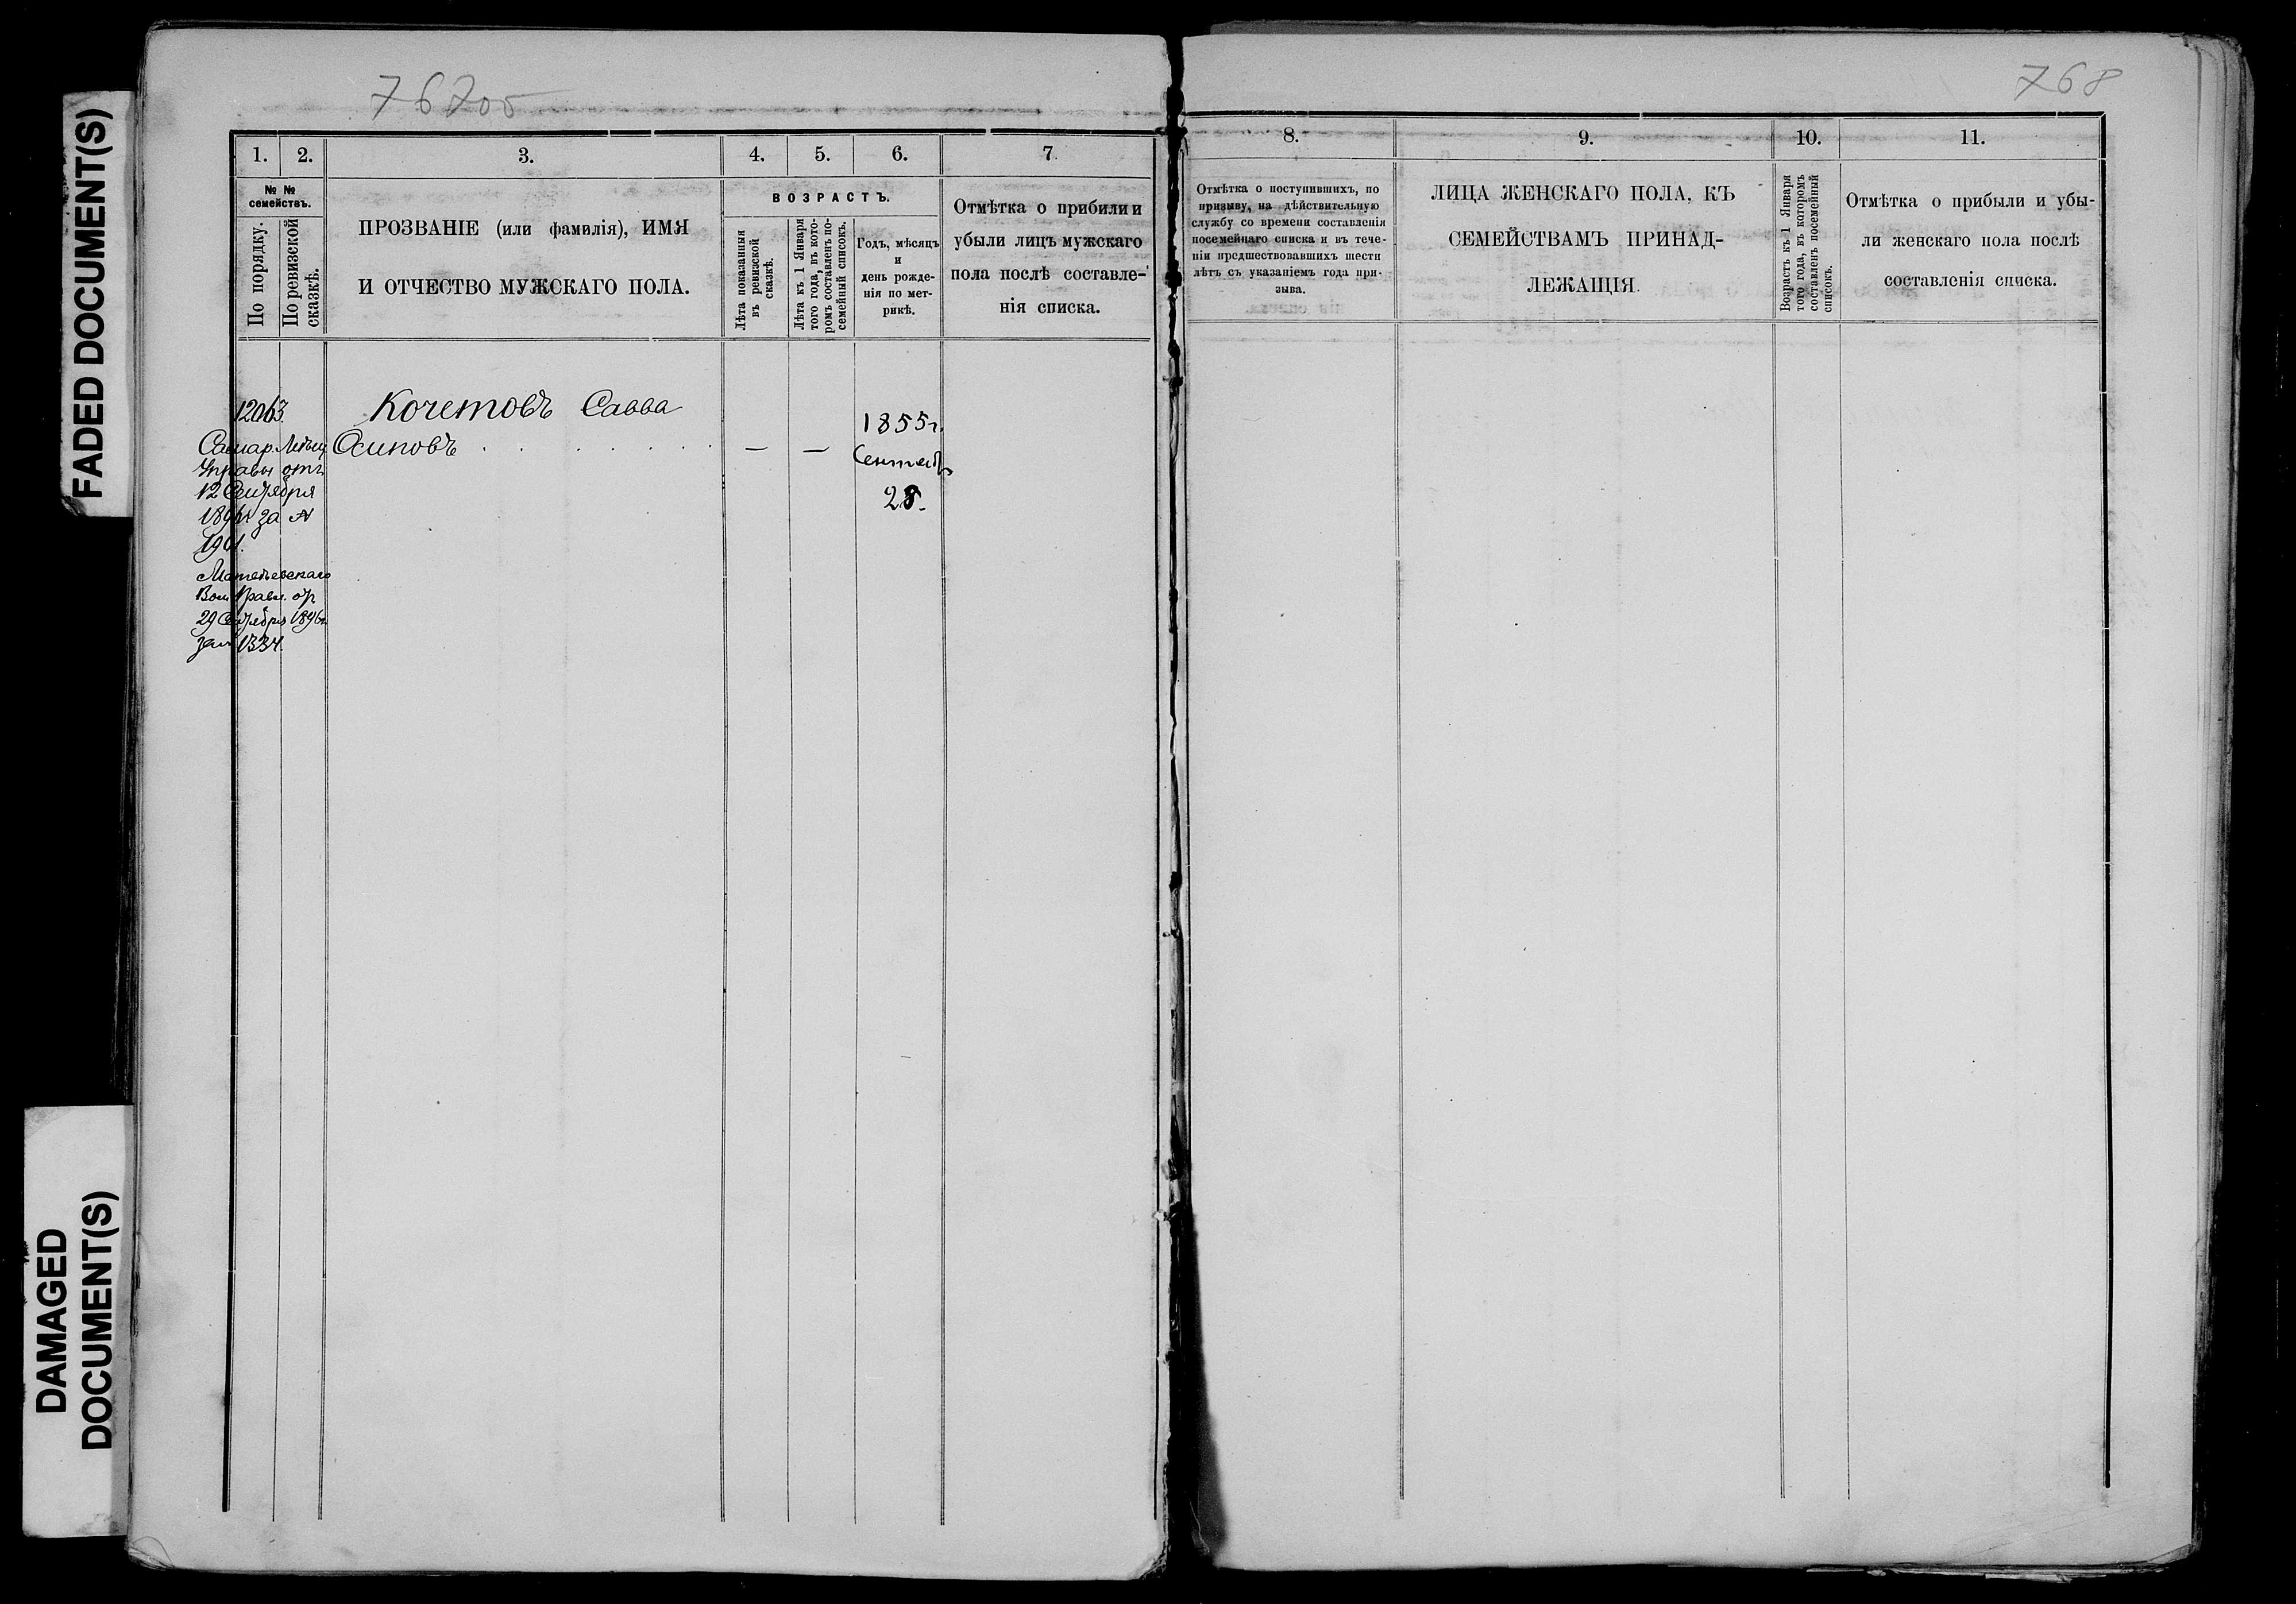 FADED DOCUMENT(S)
DAMAGED
DOCUMENT(S)
767об
768
1.
2.
3.
4.
5.
6.
7.
№ №
семействъ.
По порядку.
По ревизской
сказкѣ.
ПРОЗВАНІЕ (или фамилія), ИМЯ
И ОТЧЕСТВО МУЖСКАГО ПОЛА.
ВОЗРАСТЪ.
Лѣта показанныя
въ ревизской
сказкѣ.
Лѣта къ 1 Января
того года, въ кото-
ромъ составленъ по-
семейный списокъ.
Годъ, мѣсяцъ
и
день рожде-
нія по мет-
рикѣ.
Отмѣтка о прибили и
убыли лицъ мужскаго
пола послѣ составле-
нія списка.
12063.
Кочетовъ Савва
Осиповъ
— —
1855г.
Сентябр
28.
Самар. Мѣщ.
Управы отъ
12 Сентября
1896г за №
1901.
Вол. Правл. от
29 Сентября 1896г.
за № 1334.
8.
9.
10.
11.
Отмѣтка о поступившихъ, по
призыву, на дѣйствительную
службу со времени составленія
посемейнаго списка и въ тече-
ніи предшествовавшихъ шести
лѣтъ съ указаніемъ года при-
зыва.
ЛИЦА ЖЕНСКАГО ПОЛА, КЪ
СЕМЕЙСТВАМЪ ПРИНАД-
ЛЕЖАЩІЯ.
Возрастъ къ 1 Января
того года, въ которомъ
составленъ посемейный
списокъ.
Отмѣтка о прибыли и убы-
ли женскаго пола послѣ
составленія списка.